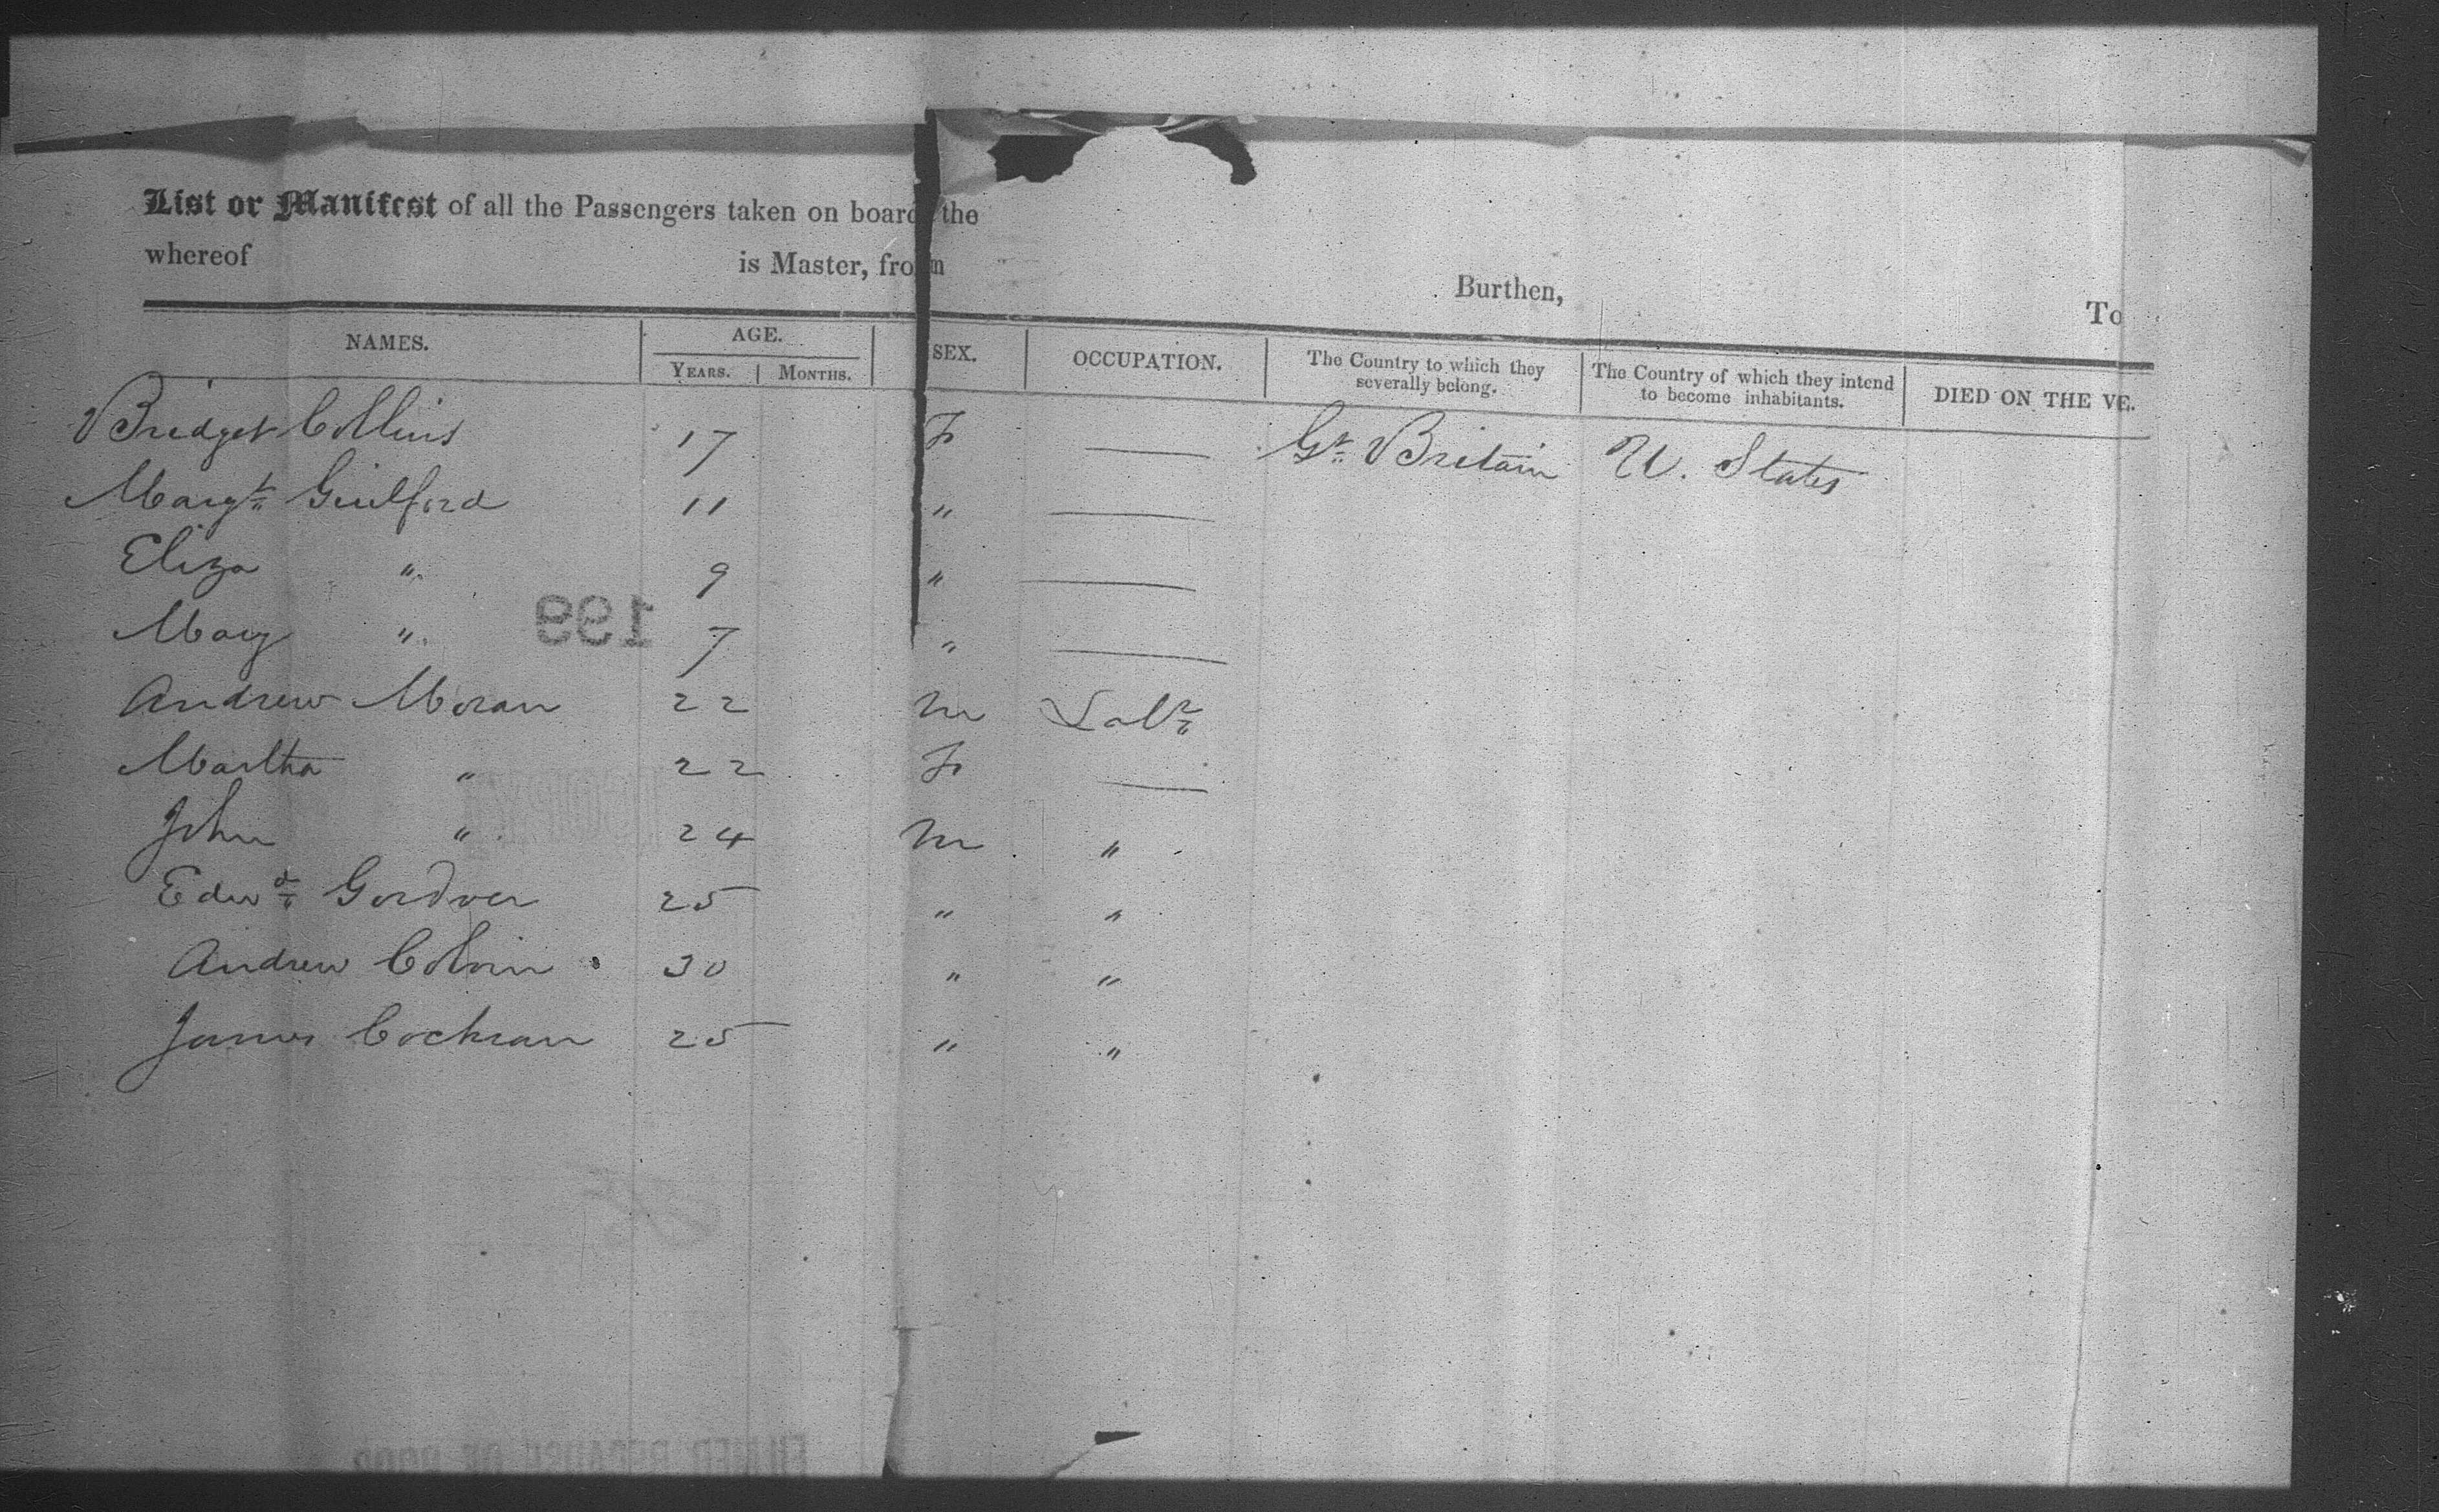 List or Manifest of all the Passengers taken on board the
whereof is Master, from
Burthen,
To
NAMES. AGE. SEX. OCCUPATION. The Country to which they severally belong. The Country of which they intend to become inhabitants. DIED ON THE VE.
YEARS. MONTHS.
Bridget Collins 17 F — Gt. Britain U. States
Margt. Guilford 11 " —
Eliza " 9 " —
Mary " 7 " —
199
Andrew Moran 22 M Labr.
Martha " 22 F —
John " 24 M "
Edwd. 25 " "
Andrew Colvin 30 " "
James Cochran 25 " "
FILMED BECAUSE OF POOR